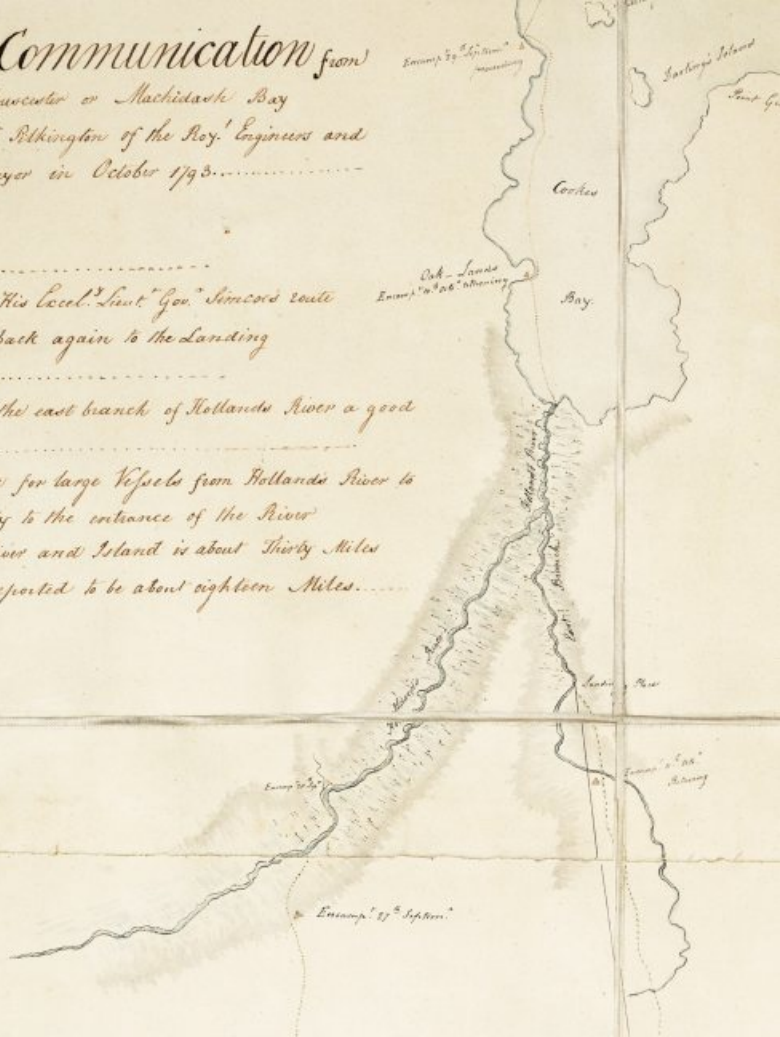 Communication from
or Machidash Bay
Pilkington of the Roy.l Engineers and
in October 1793
His Excel.y Lieut.t Gov.r Simcoe's route
back again to the Landing
the east branch of Hollands River a good
for large Vessels from Hollands River to
to the entrance of the River
and Island is about Thirty Miles
reported to be about eighteen Miles
Encamp.t 29.th Septem.r
Island
Point
Cookes
Bay
Oak-Lands
Encamp.t
Hollands River
East Branch
Hollands River
Landing Place
Encamp.t
Encamp.t
Returning
Encamp.t 27.th Septem.r